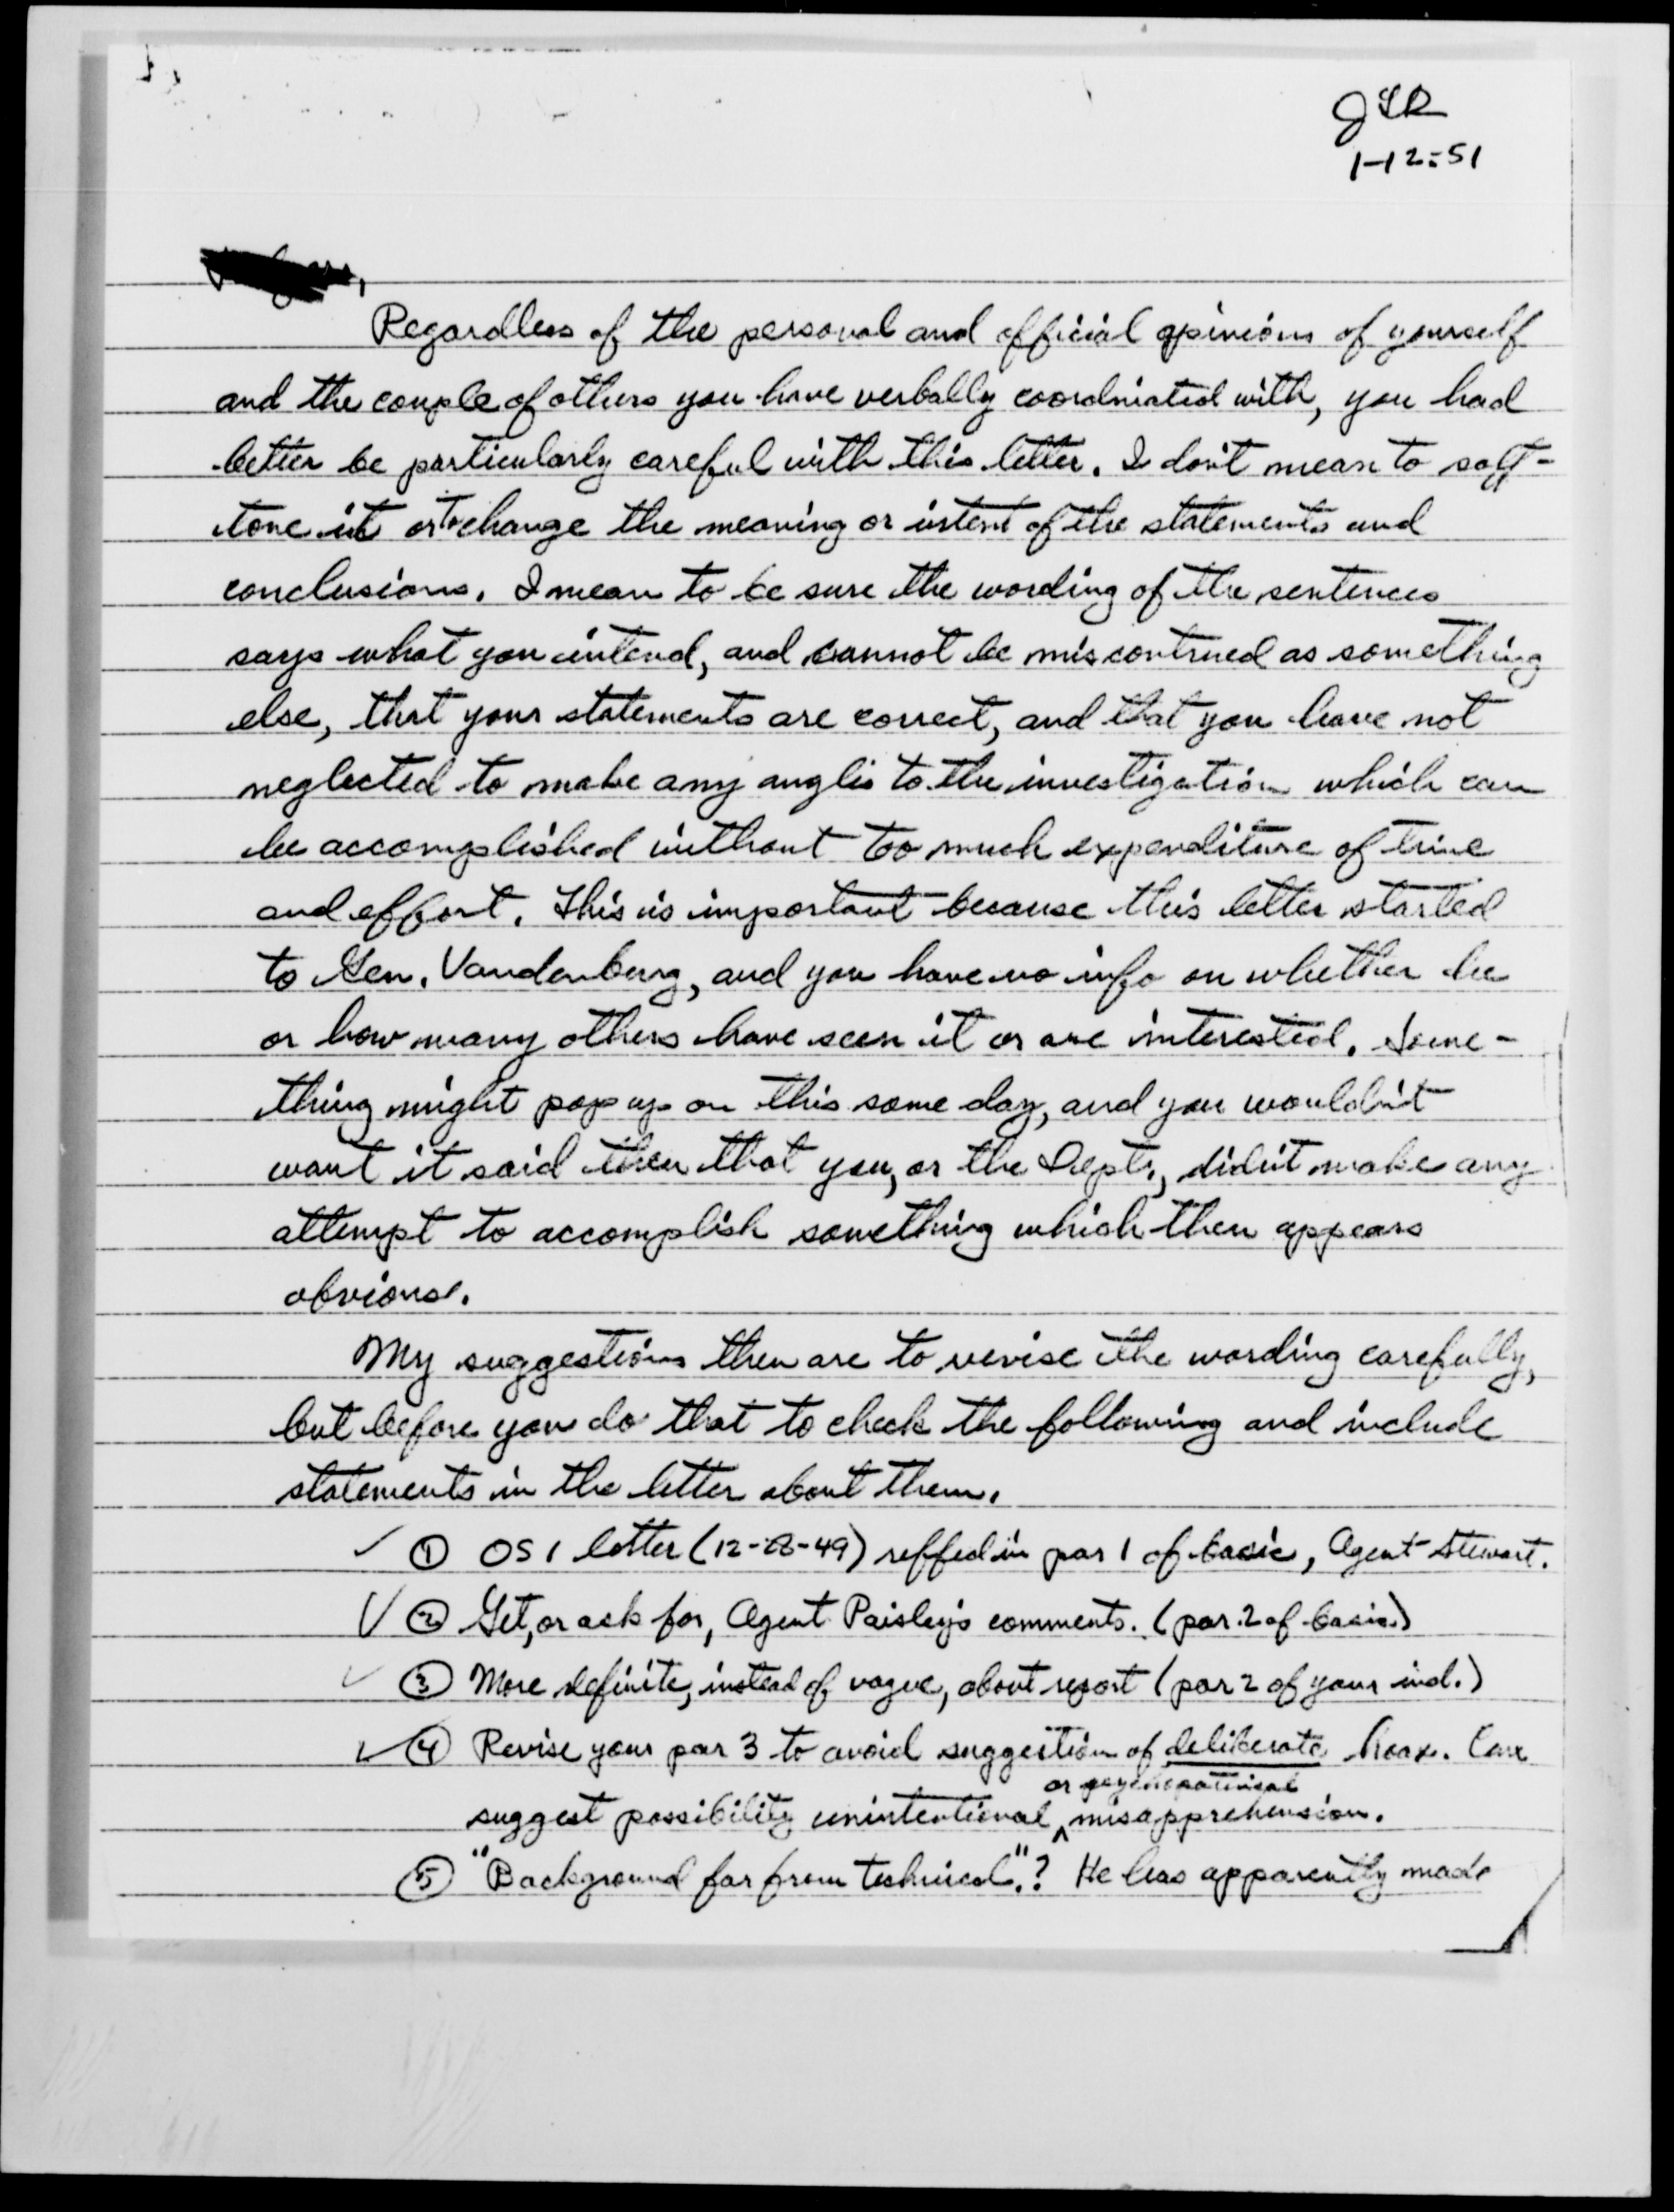 1-12-51
Regardless of the personal and official opinions of yourself
and the couple of others you have verbally coordinated with, you had
better be particularly careful with this letter. I don't mean to soft-
tone it or to change the meaning or intent of the statements and
conclusions. I mean to be sure the wording of the sentences
says what you intend, and cannot be miscontrued as something
else, that your statements are correct, and that you have not
neglected to make any angles to the investigation which can
be accomplished without too much expenditure of time
and effort. This is important because this letter started
to Gen. Vandenburg, and you have no info on whether he
or how many others have seen it or are interested. Some-
thing might pop up on this some day, and you wouldn't
want it said then that you, or the Dept., didn't make any
attempt to accomplish something which then appears
obvious.
My suggestions then are to revise the wording carefully,
but before you do that to check the following and include
statements in the letter about them.
✓ ① OSI letter (12-28-49) reffed in par 1 of basic, Agent Stewart.
✓ ② Get, or ask for, Agent Paisley's comments. (par. 2 of basic.)
✓ ③ More definite, instead of vague, about report (par 2 of your ind.)
✓ ④ Revise your par 3 to avoid suggestion of deliberate hoax. Can
or psychopathical
suggest possibility unintentional ^ misapprehension.
⑤ "Background far from technical."? He has apparently made